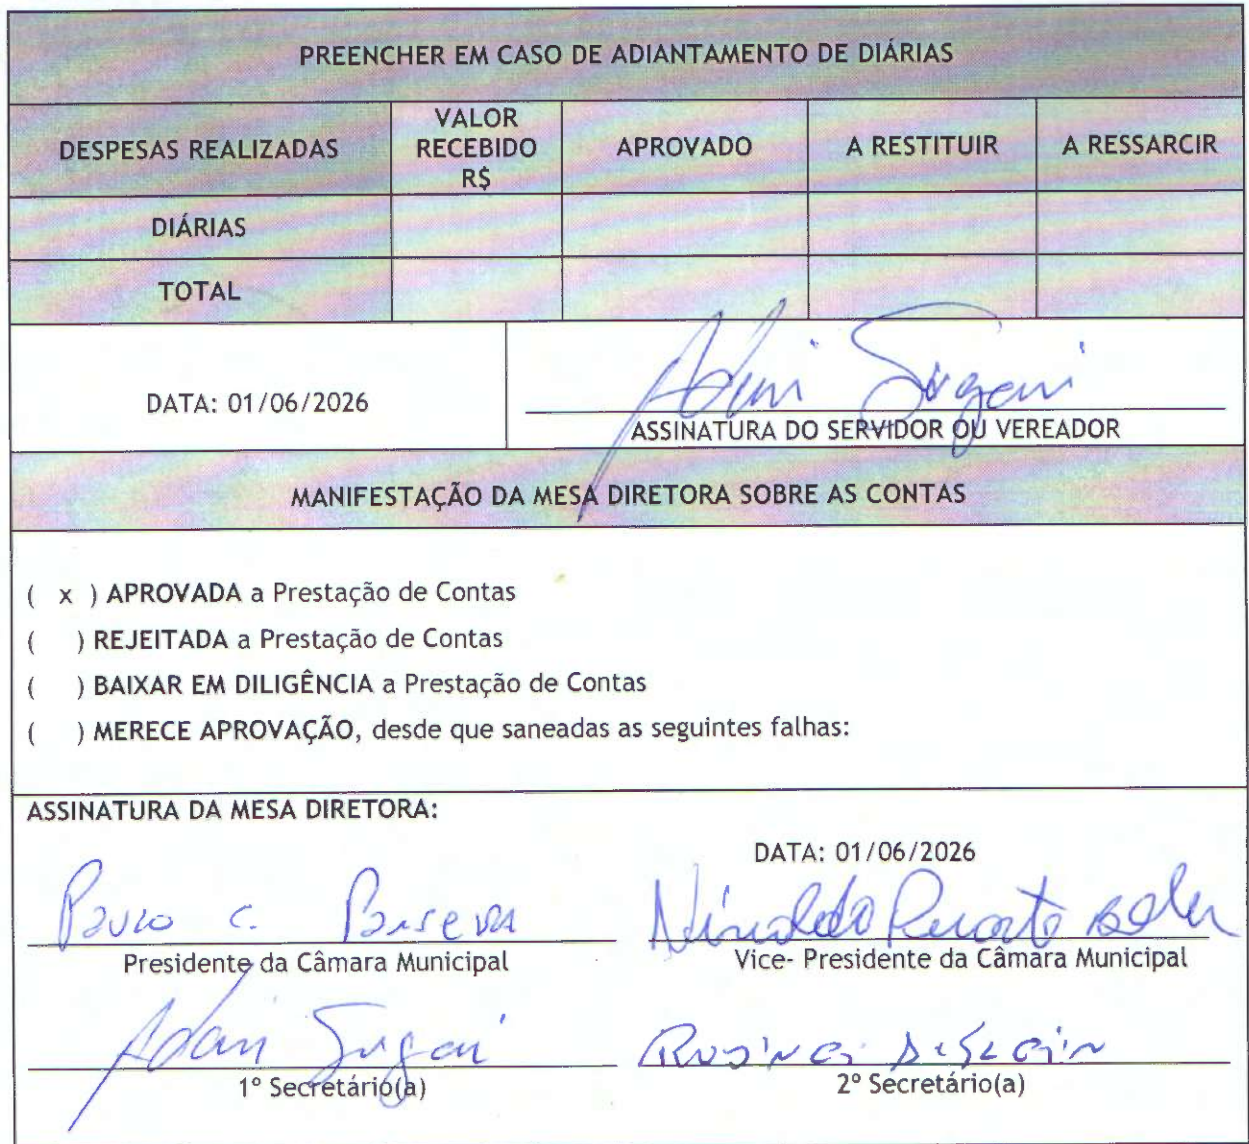 PREENCHER EM CASO DE ADIANTAMENTO DE DIÁRIAS
DESPESAS REALIZADAS
VALOR RECEBIDO R$
APROVADO
A RESTITUIR
A RESSARCIR
DIÁRIAS
TOTAL
DATA: 01/06/2026
ASSINATURA DO SERVIDOR OU VEREADOR
MANIFESTAÇÃO DA MESA DIRETORA SOBRE AS CONTAS
( x ) APROVADA a Prestação de Contas
( ) REJEITADA a Prestação de Contas
( ) BAIXAR EM DILIGÊNCIA a Prestação de Contas
( ) MERECE APROVAÇÃO, desde que saneadas as seguintes falhas:
ASSINATURA DA MESA DIRETORA:
DATA: 01/06/2026
Paulo C.
Presidente da Câmara Municipal
Vice- Presidente da Câmara Municipal
1º Secretário(a)
2º Secretário(a)